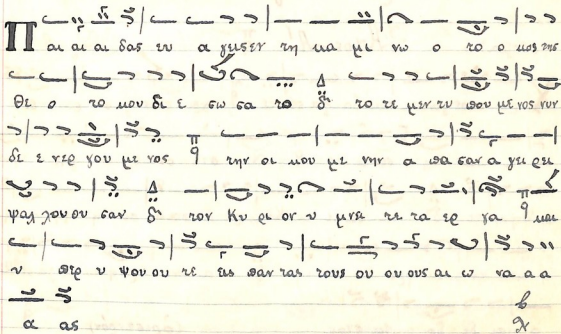 Π αι αι αι δας ευ α γεις εν τη κα μι νω ο το ο κος της
Θε ο το κου δι ε σω σα το δι το τε μεν τυ που με νος νυν
δε ε νερ γου με νος την οι κου με νην α πα σαν α γει ρει
ψαλ λου ου σαν δι τον Κυ ρι ον υ μνει τε τα ερ γα και
υ περ υ ψου ου τε εις παν τας τους ου ου ους αι ω να α α
α ας